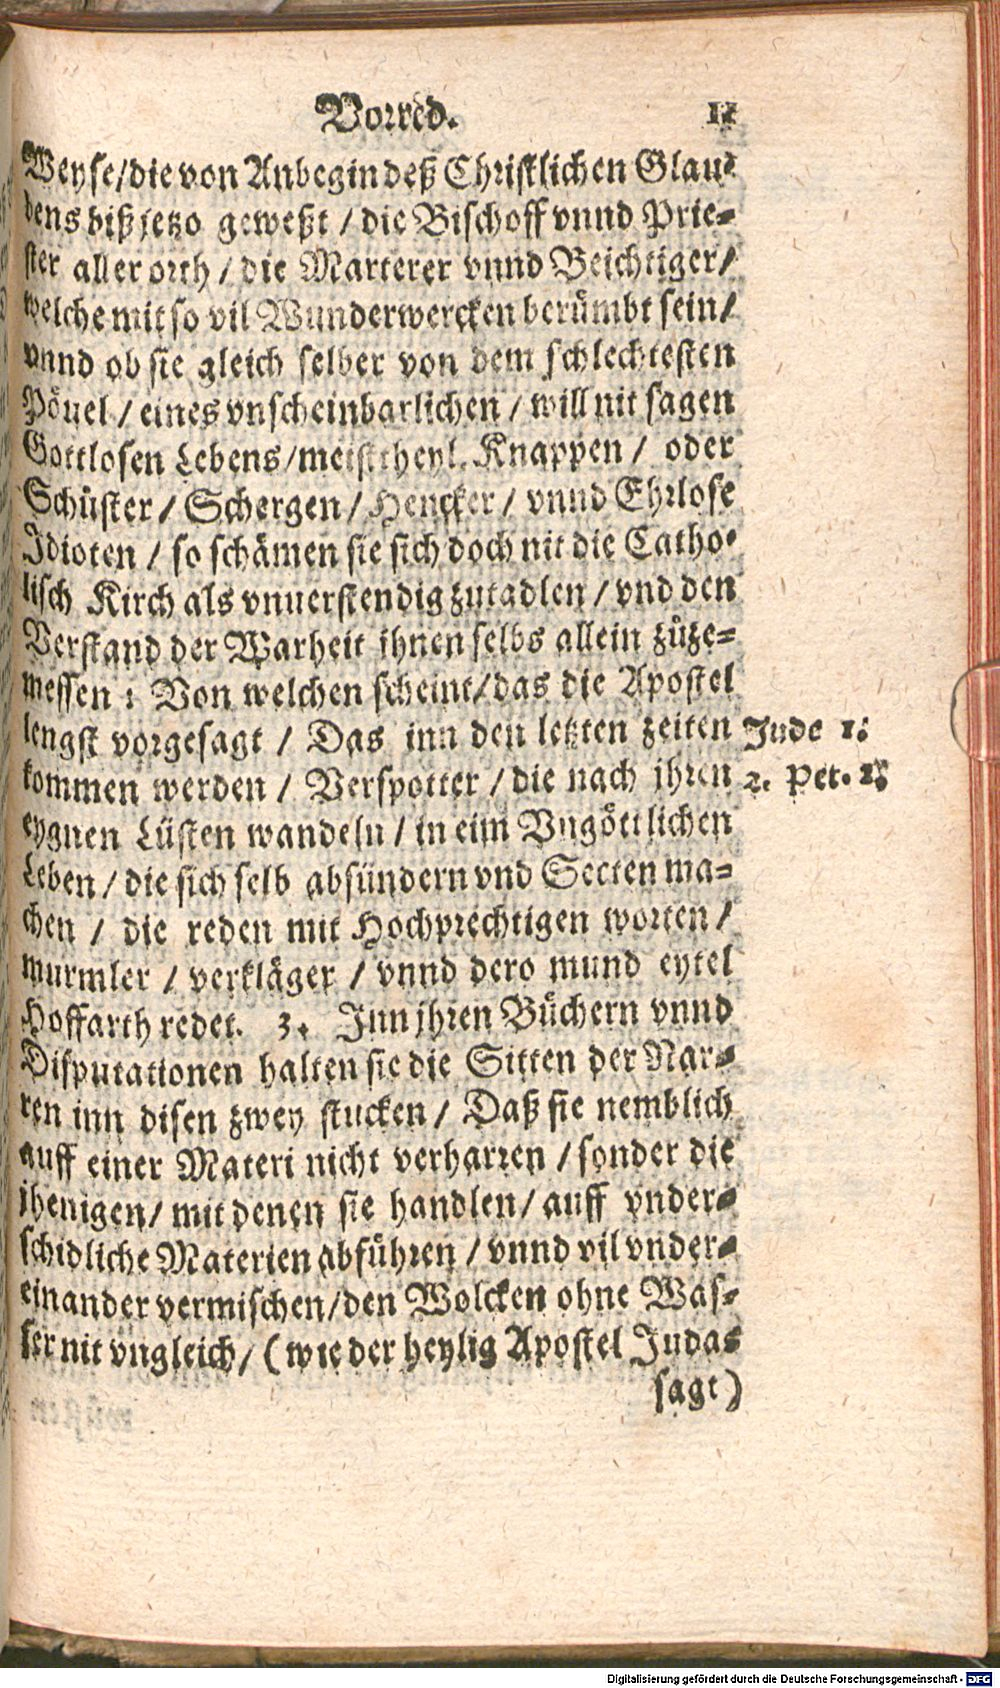 Vorred. 11
Weyse/die von Anbegin deß Christlichen Glau-
bens biß jetzo geweßt / die Bischoff vnnd Prie-
ster aller orth / die Marterer vnnd Beichtiger/
welche mit so vil Wunderwercken berümbt sein/
vnnd ob sie gleich selber von dem schlechtesten
Pöuel / eines vnscheinbarlichen / will nit sagen
Gottlosen Lebens/meisttheyl. Knappen / oder
Schüster / Schergen / Hencker / vnnd Ehrlose
Idioten / so schämen sie sich doch nit die Catho-
lisch Kirch als vnuerstendig zutadlen / vnd den
Verstand der Warheit jhnen selbs allein züze-
messen : Von welchen scheint/das die Apostel
lengst vorgesagt / Das inn den letzten zeiten
kommen werden / Verspotter / die nach jhren
eygnen Lüsten wandeln / in eim Vngöttlichen
Leben / die sich selb absündern vnd Secten ma-
chen / die reden mit Hochprechtigen worten /
murmler / verkläger / vnnd dero mund eytel
Hoffarth redet. 3. Inn jhren Büchern vnnd
Disputationen halten sie die Sitten der Nar-
ren inn disen zwey stucken / Daß sie nemblich
auff einer Materi nicht verharren / sonder die
jhenigen / mit denen sie handlen / auff vnder-
schidliche Materien abführen / vnnd vil vnder-
einander vermischen/den Wolcken ohne Was-
ser nit vngleich / (wie der heylig Apostel Judas
sagt)
Jude 1.
2. Pet.
Digitalisierung gefördert durch die Deutsche Forschungsgemeinschaft - DFG